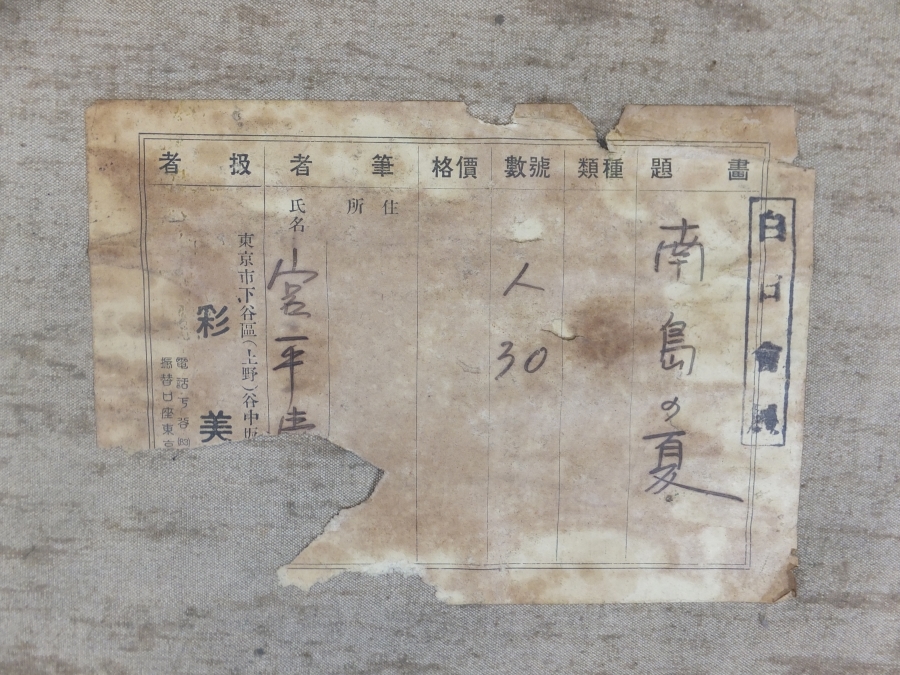 白日會員
畫題
南島の夏
種類
號數
人
30
價格
筆者
住所
氏名
宮平清
扱者
東京市下谷區(上野)谷中坂
彩美
電話下谷四
振替口座東京